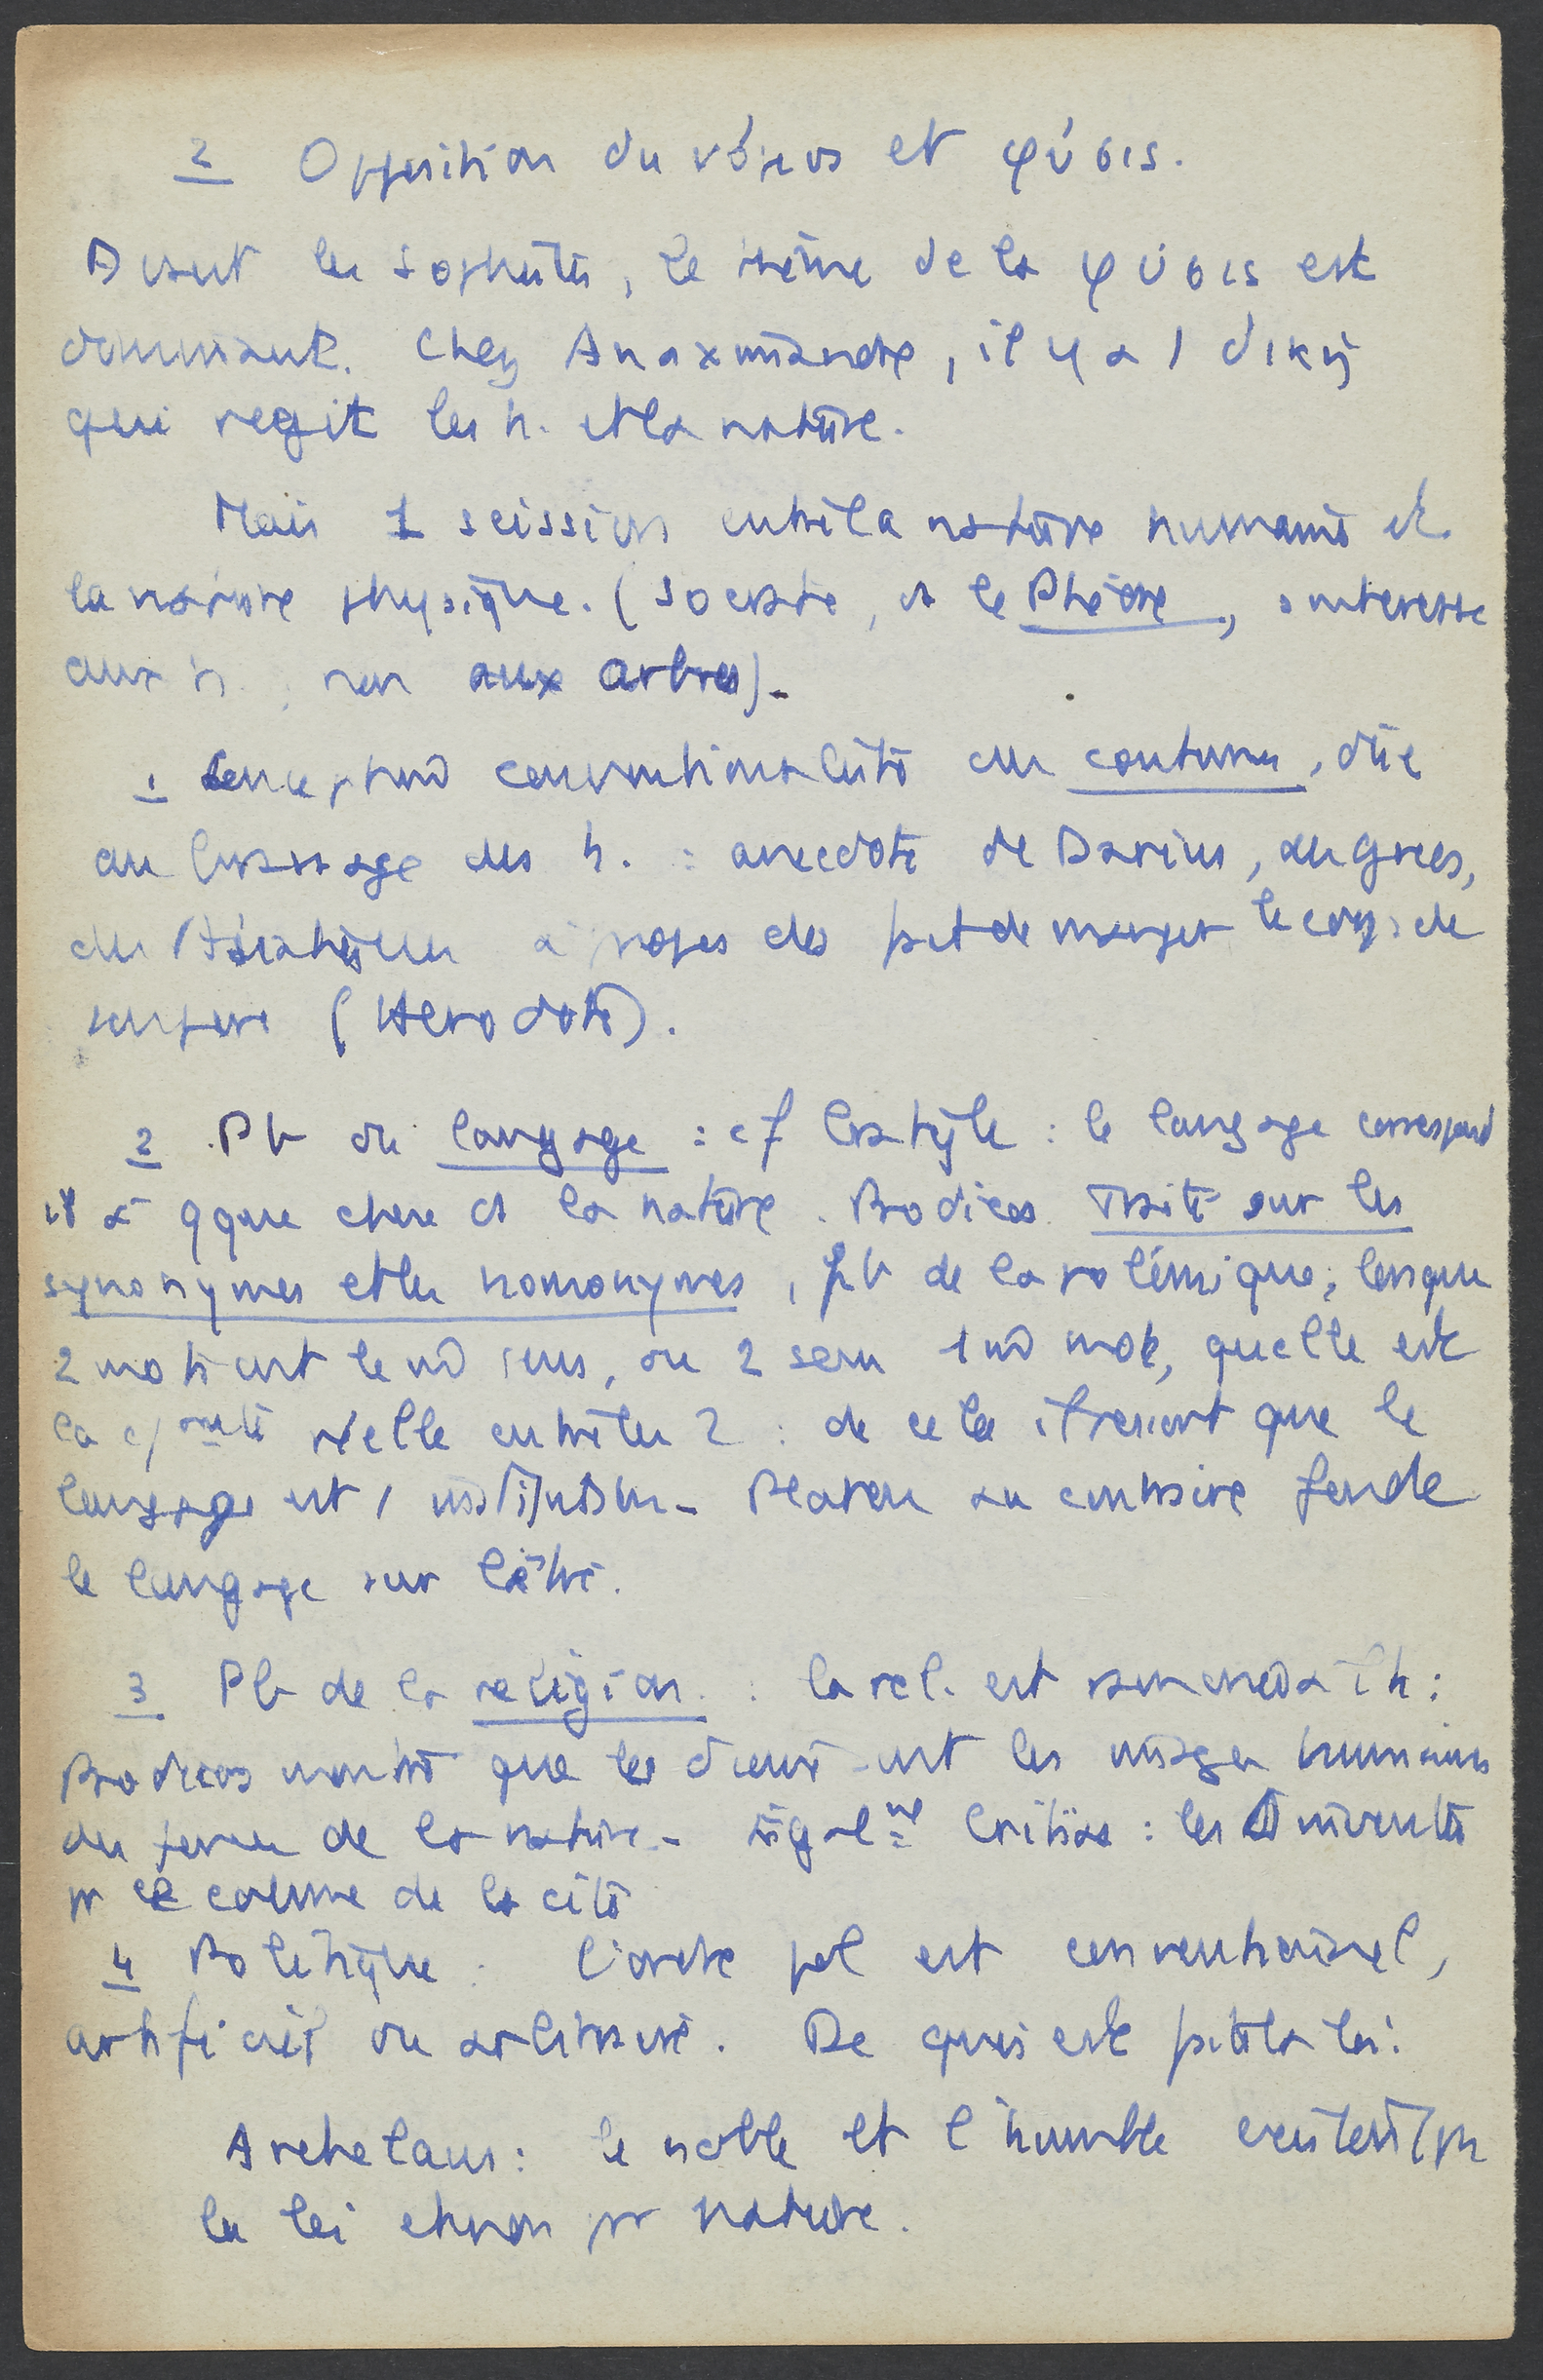 2 Opposition du νόμος et φύσις.
Avant les sophistes, le thème de la φύσις est
dominant. Chez Anaximandre, il y a 1 δίκη
qui régit les h. et la nature.
Mais 1 scission entre la nature humaine et
la nature physique. (Socrate, ds le Phèdre, s'intéresse
aux h., non aux arbres).
1 conventionalité des coutumes, due
au bavardage des h. : anecdote de Darius, des grecs,
des Asiatiques à propos du fait de manger le corps de
son père (Hérodote).
2 Pb du langage : cf Cratyle : le langage correspond
il à qque chose ds la nature. Prodicos Traité sur les
synonymes et les homonymes, pb de la polémique ; lorsque
2 mots ont le m̂ sens, ou 2 sens 1 m̂ mot, quelle est
la réelle entre les 2 : de cela il ressort que le
langage est 1 institution. Platon au contraire fonde
le langage sur l'être.
3 Pb de la religion : la rel. est ramenée à l'h :
Prodicos montre que les dieux sont les images humaines
des forces de la nature. également Critias : les inventés
pr le calme de la cité
4 Politique : l'ordre pol est conventionnel,
artificiel ou arbitraire. De quoi est faite la loi :
Archelaus : le noble et l'humble existent pr
la loi et non pr nature.